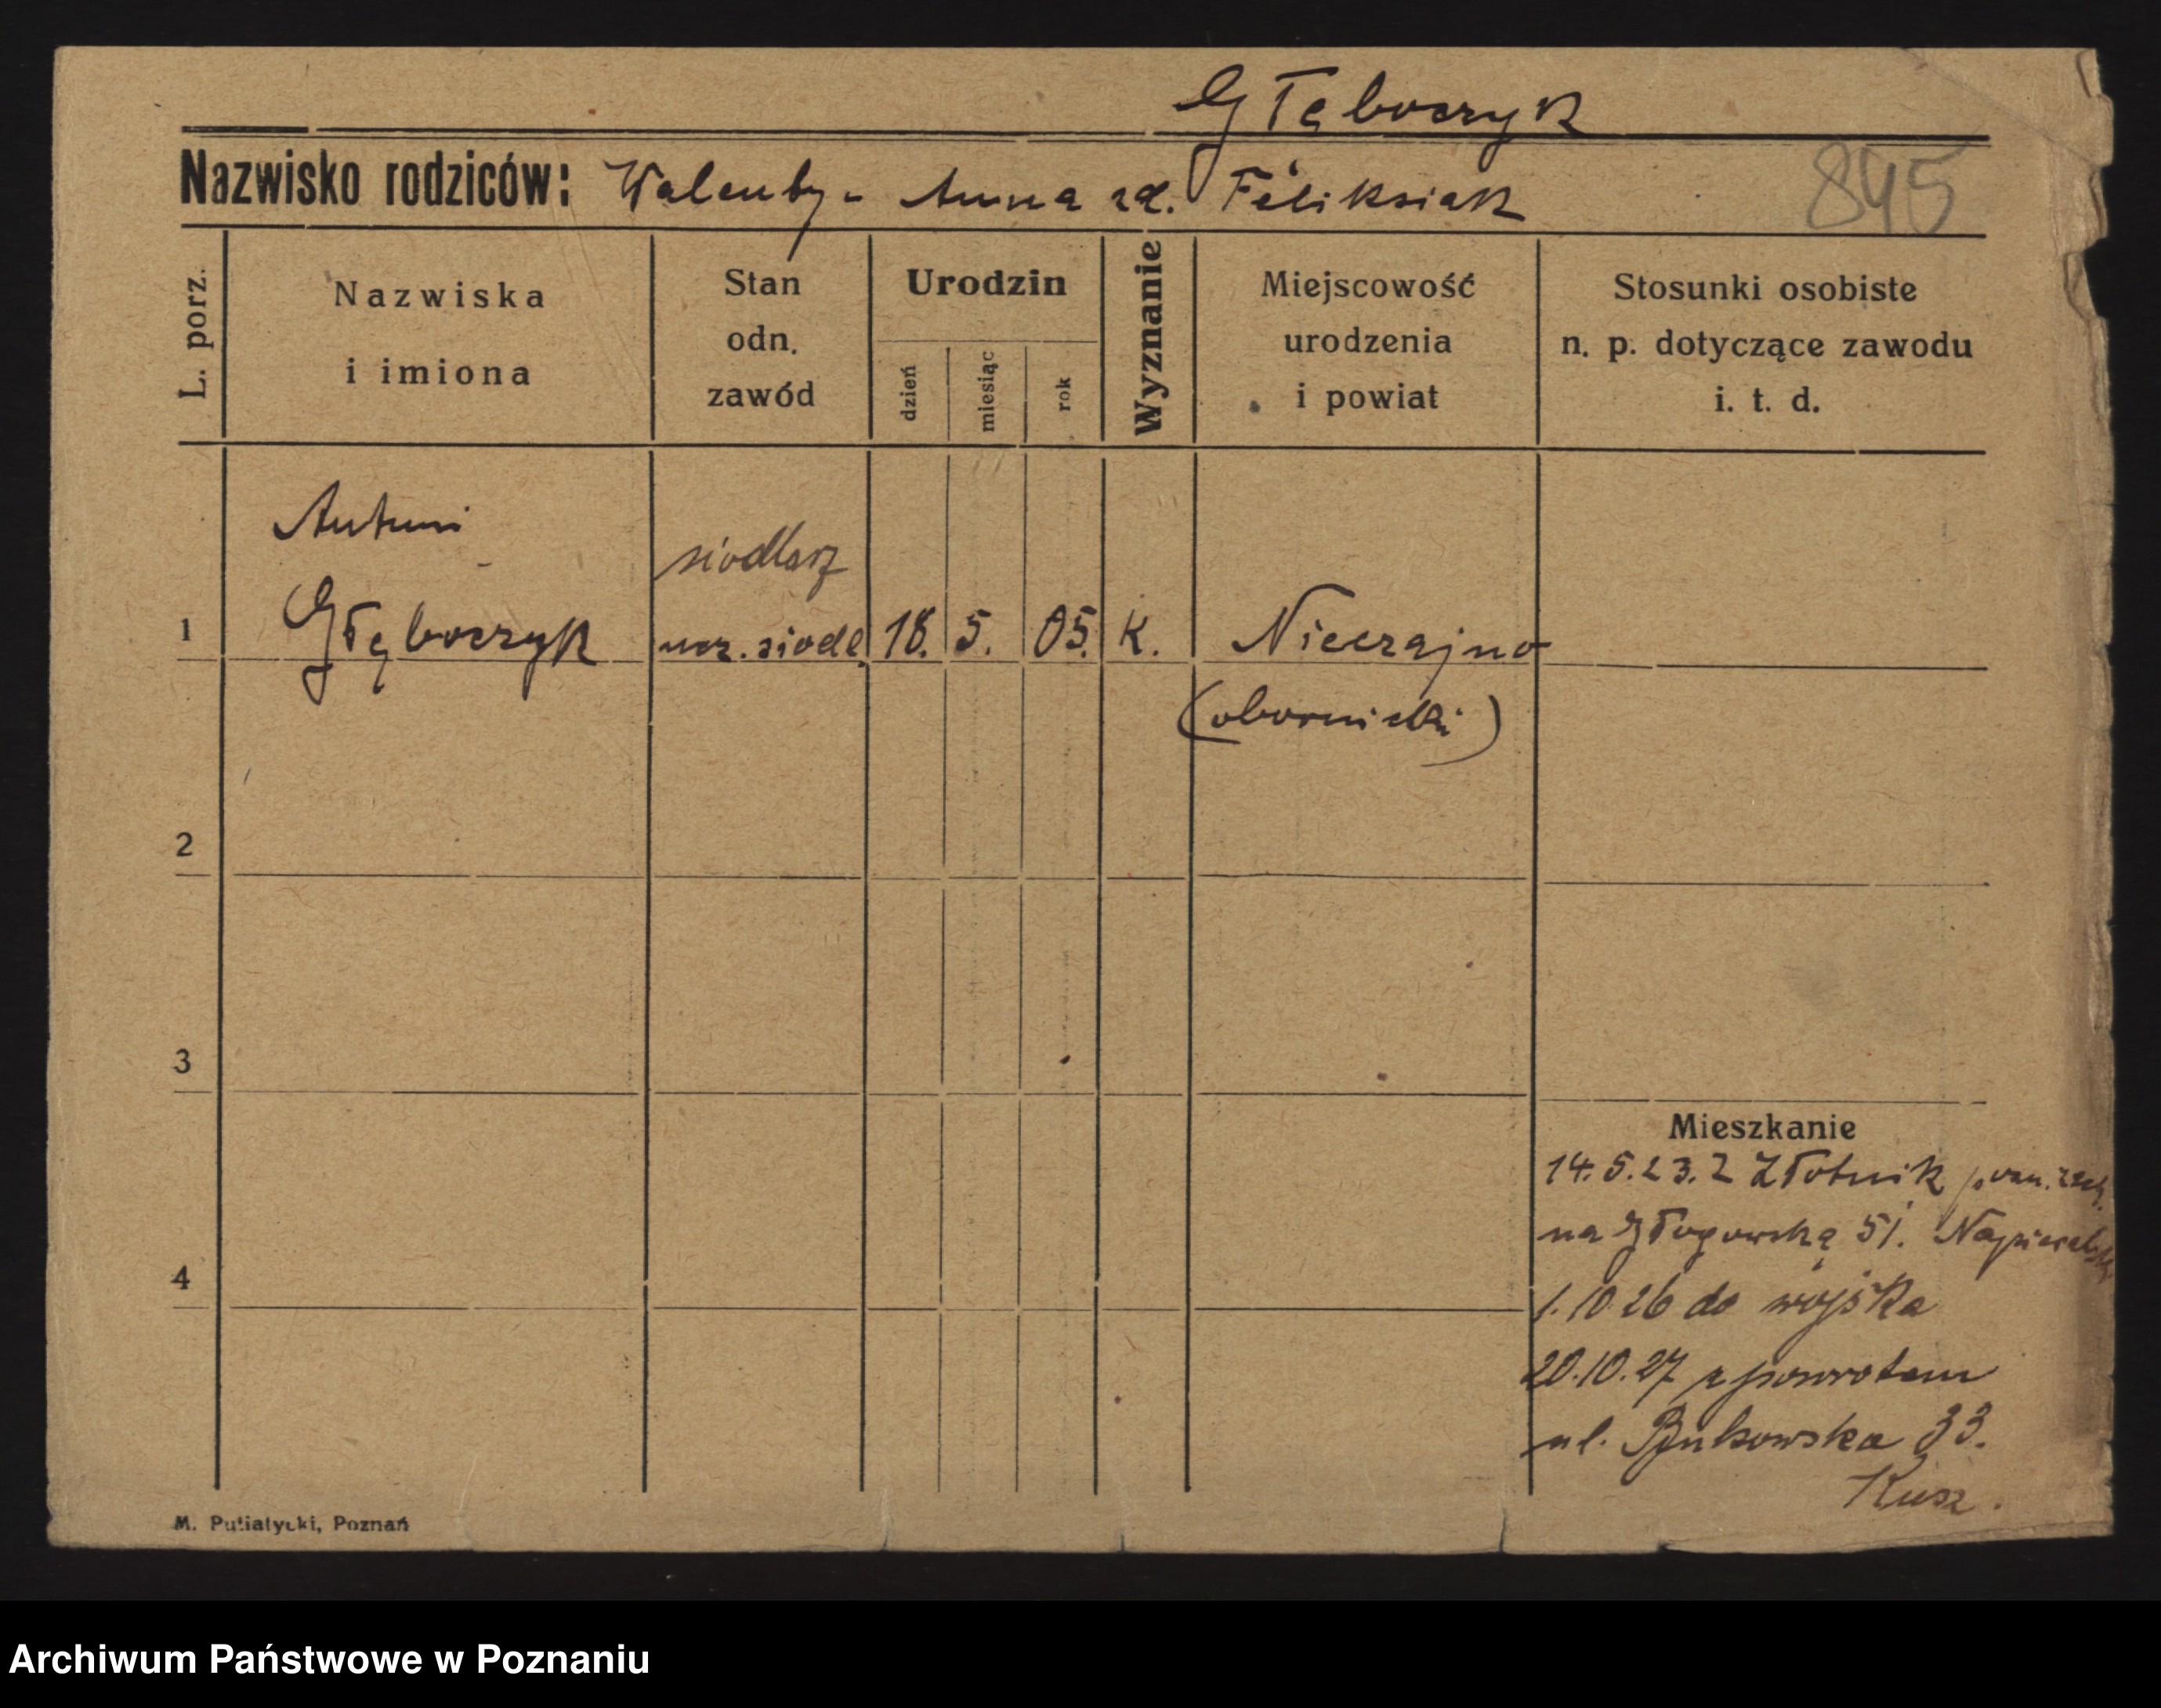 Głęboczyk
Nazwisko rodziców: Walenty - Anna zd. Feliksiak
845
L. porz.
Nazwiska
i imiona
Stan
odn.
zawód
Urodzin
dzień
miesiąc
rok
Wyznanie
Miejscowość
urodzenia
i powiat
Stosunki osobiste
n. p. dotyczące zawodu
i. t. d.
Antoni
siodlarz
1 Głęboczyk ucz. siodl. 18. 5. 05. K. Nieczajno
(obornicki)
2
3
Mieszkanie
14.5.23. z Złotnik pozn. zach.
na Głogowską 51. Napieralski
4
1.10.26 do wojska
20.10.27 z powrotem
ul. Bukowska 33.
Kusz.
M. Putiatycki, Poznań
Archiwum Państwowe w Poznaniu